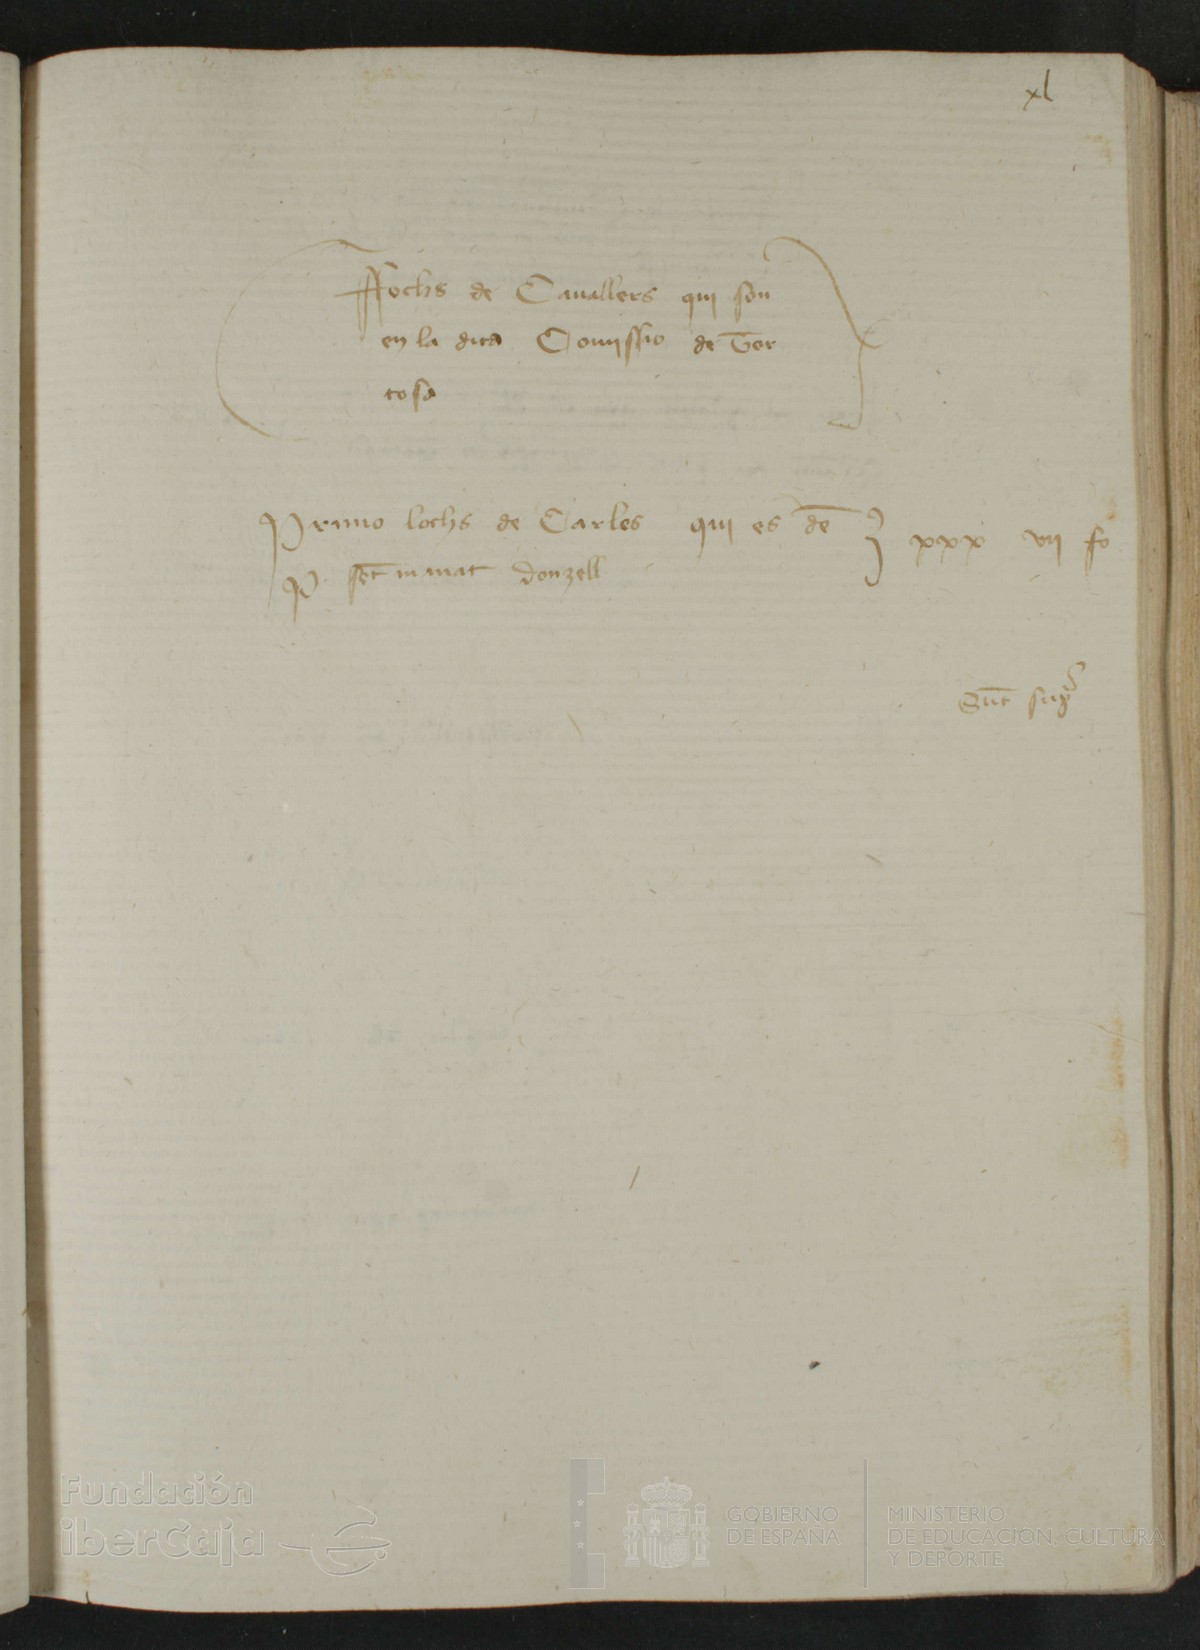 xl
Ffochs de Cauallers qui son
en la dita Comissio de Tor
tosa
Primo lochs de Carles qui es de
P. sent manat donzell
xxx vii fo
Sut
Fundación
iberCaja
GOBIERNO
DE ESPAÑA
MINISTERIO
DE EDUCACIÓN, CULTURA
Y DEPORTE